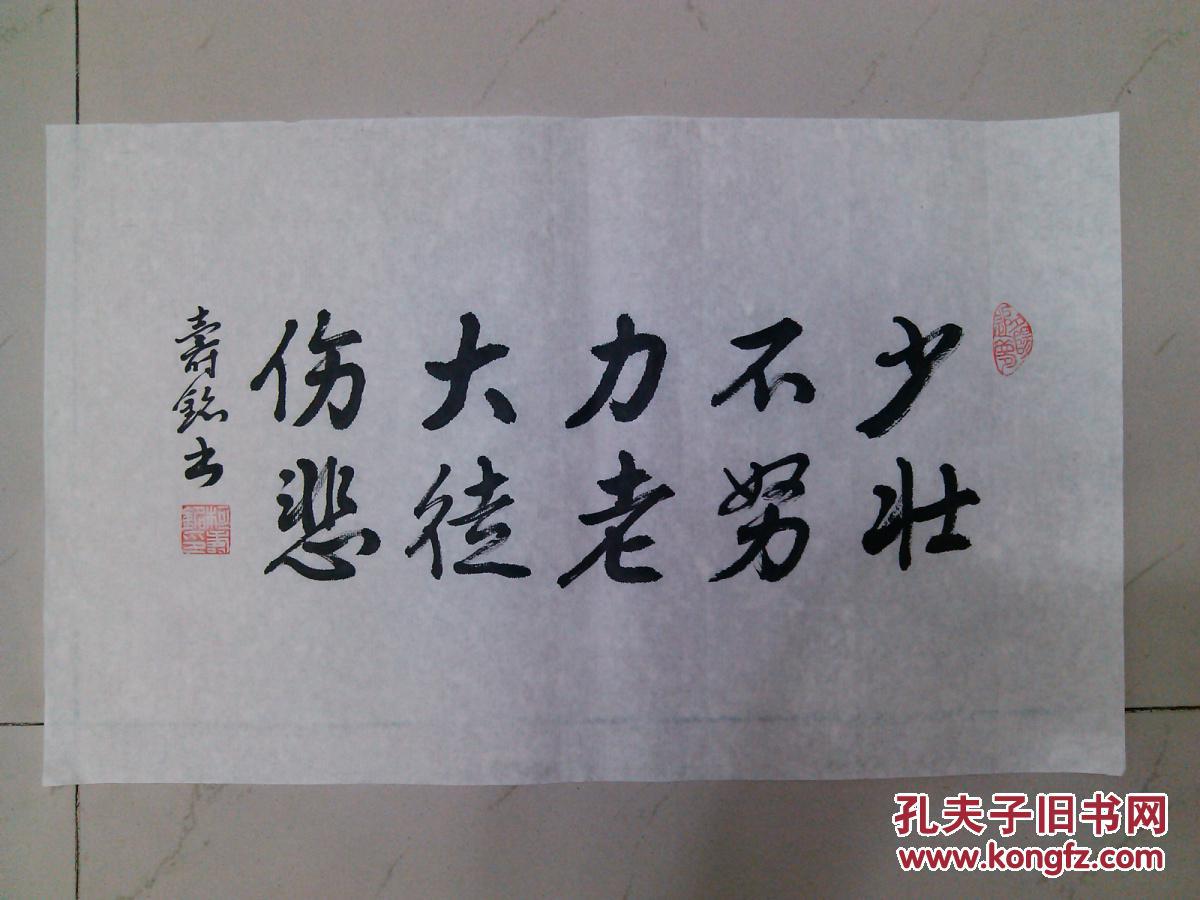 少壮
不努
力老
大徒
伤悲
壽铭书
孔夫子旧书网
www.kongfz.com